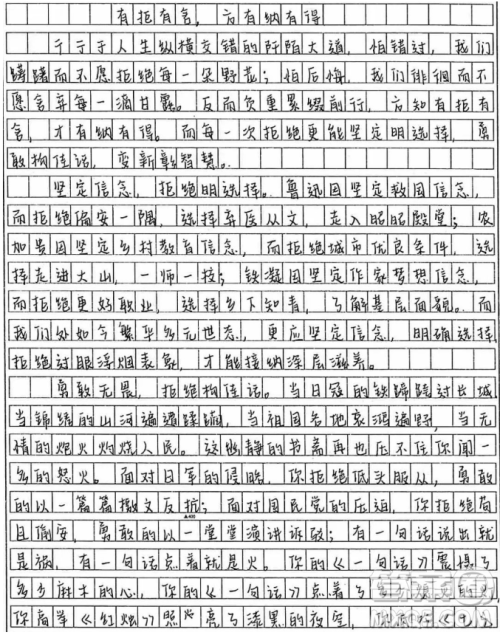 有拒有舍，方有纳有得
孑孑于人生纵横交错的阡陌大道，怕错过，我们
踌躇而不愿拒绝每一朵野花；怕后悔，我们徘徊而不
愿舍弃每一滴甘露。反而负重累缀前行，方知有拒有
舍，才有纳有得。而每一次拒绝更能坚定明选择，勇
敢拘佳话，变新彰智慧。
坚定信念，拒绝明选择。鲁迅因坚定救国信念，
而拒绝偏安一隅，选择弃医从文，走入昭昭殿堂；农
加贵因坚定乡村教育信念，而拒绝城市优良条件，选
择走进大山，一师一校；铁凝因坚定作家梦想信念，
而拒绝更好职业，选择乡下知青，了解基层面貌。而
我们处如今繁华多元世态，更应坚定信念，明确选择，
拒绝过眼浮烟表象，才能接纳深层滋养。
勇敢无畏，拒绝拘佳话。当日寇的铁蹄踏过长城，
当锦绣的山河遍遭蹂躏，当祖国各地哀鸿遍野，当无
情的炮火灼烧人民。这幽静的书斋再也压不住你闻一
多的怒火。面对日军的侵略，你拒绝低头服从，勇敢
的以一篇篇檄文反抗；面对国民党的压迫，你拒绝苟
且偷安，勇敢的以一堂堂演讲诉敌；有一句话说出就
是祸，有一句话点着就是火。你的《一句话》震慑了
多少麻木的心，你的《一句话》点着了
你高举《红烛》照亮了漆黑的夜空，